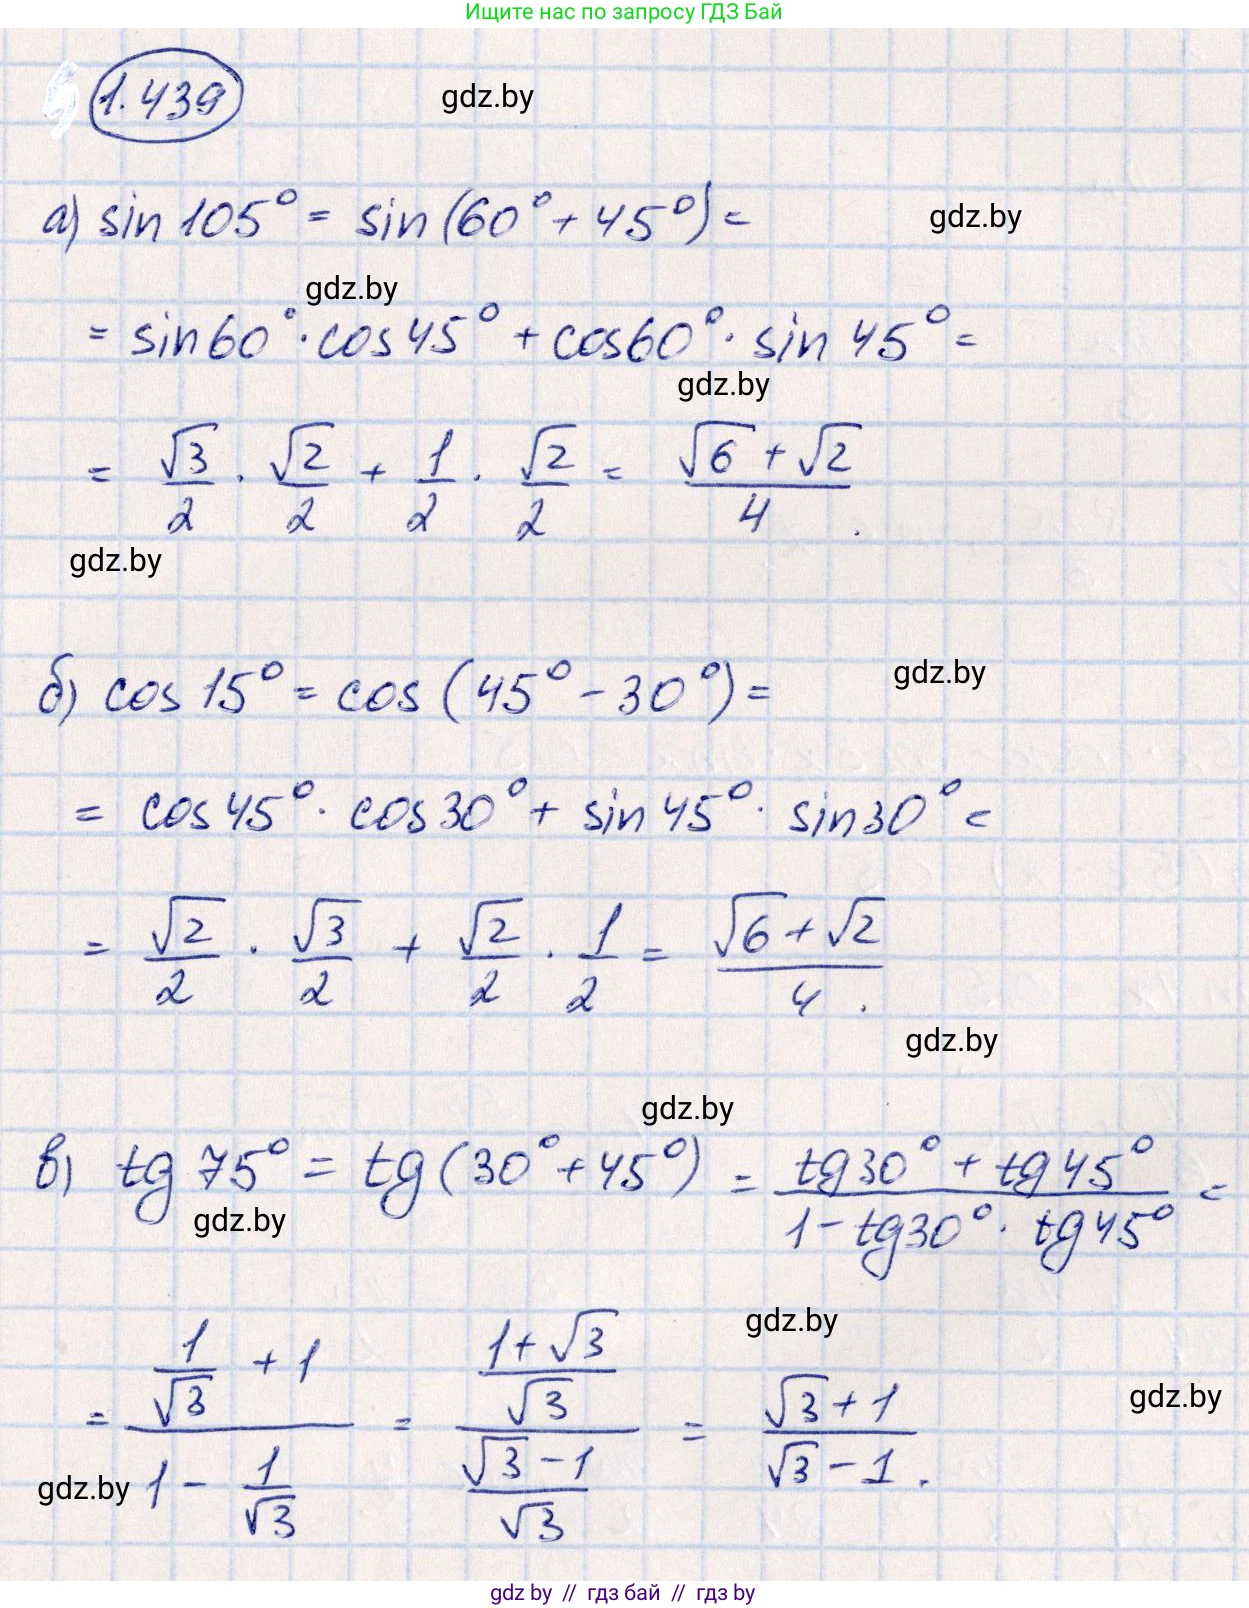 Ищите нас по запросу ГДЗ Бай
1.439
gdz.by
а) sin 105° = sin(60° + 45°) =
gdz.by
gdz.by
= sin60° · cos45° + cos60° · sin 45° =
gdz.by
= √3/2 · √2/2 + 1/2 · √2/2 = (√6 + √2)/4 .
gdz.by
б) cos 15° = cos (45° - 30°) =
gdz.by
= cos45° · cos30° + sin 45° · sin30° =
= √2/2 · √3/2 + √2/2 · 1/2 = (√6 + √2)/4 .
gdz.by
gdz.by
в) tg 75° = tg (30° + 45°) = (tg30° + tg45°)/(1 - tg30° · tg45°) =
gdz.by
gdz.by
= (1/√3 + 1)/(1 - 1/√3) = ((1+√3)/√3)/((√3-1)/√3) = (√3+1)/(√3-1) .
gdz.by
gdz.by
gdz.by // гдз бай // гдз by